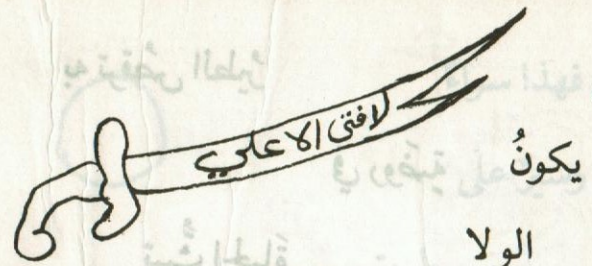 لا فتى الا علي
يكونُ
الولا